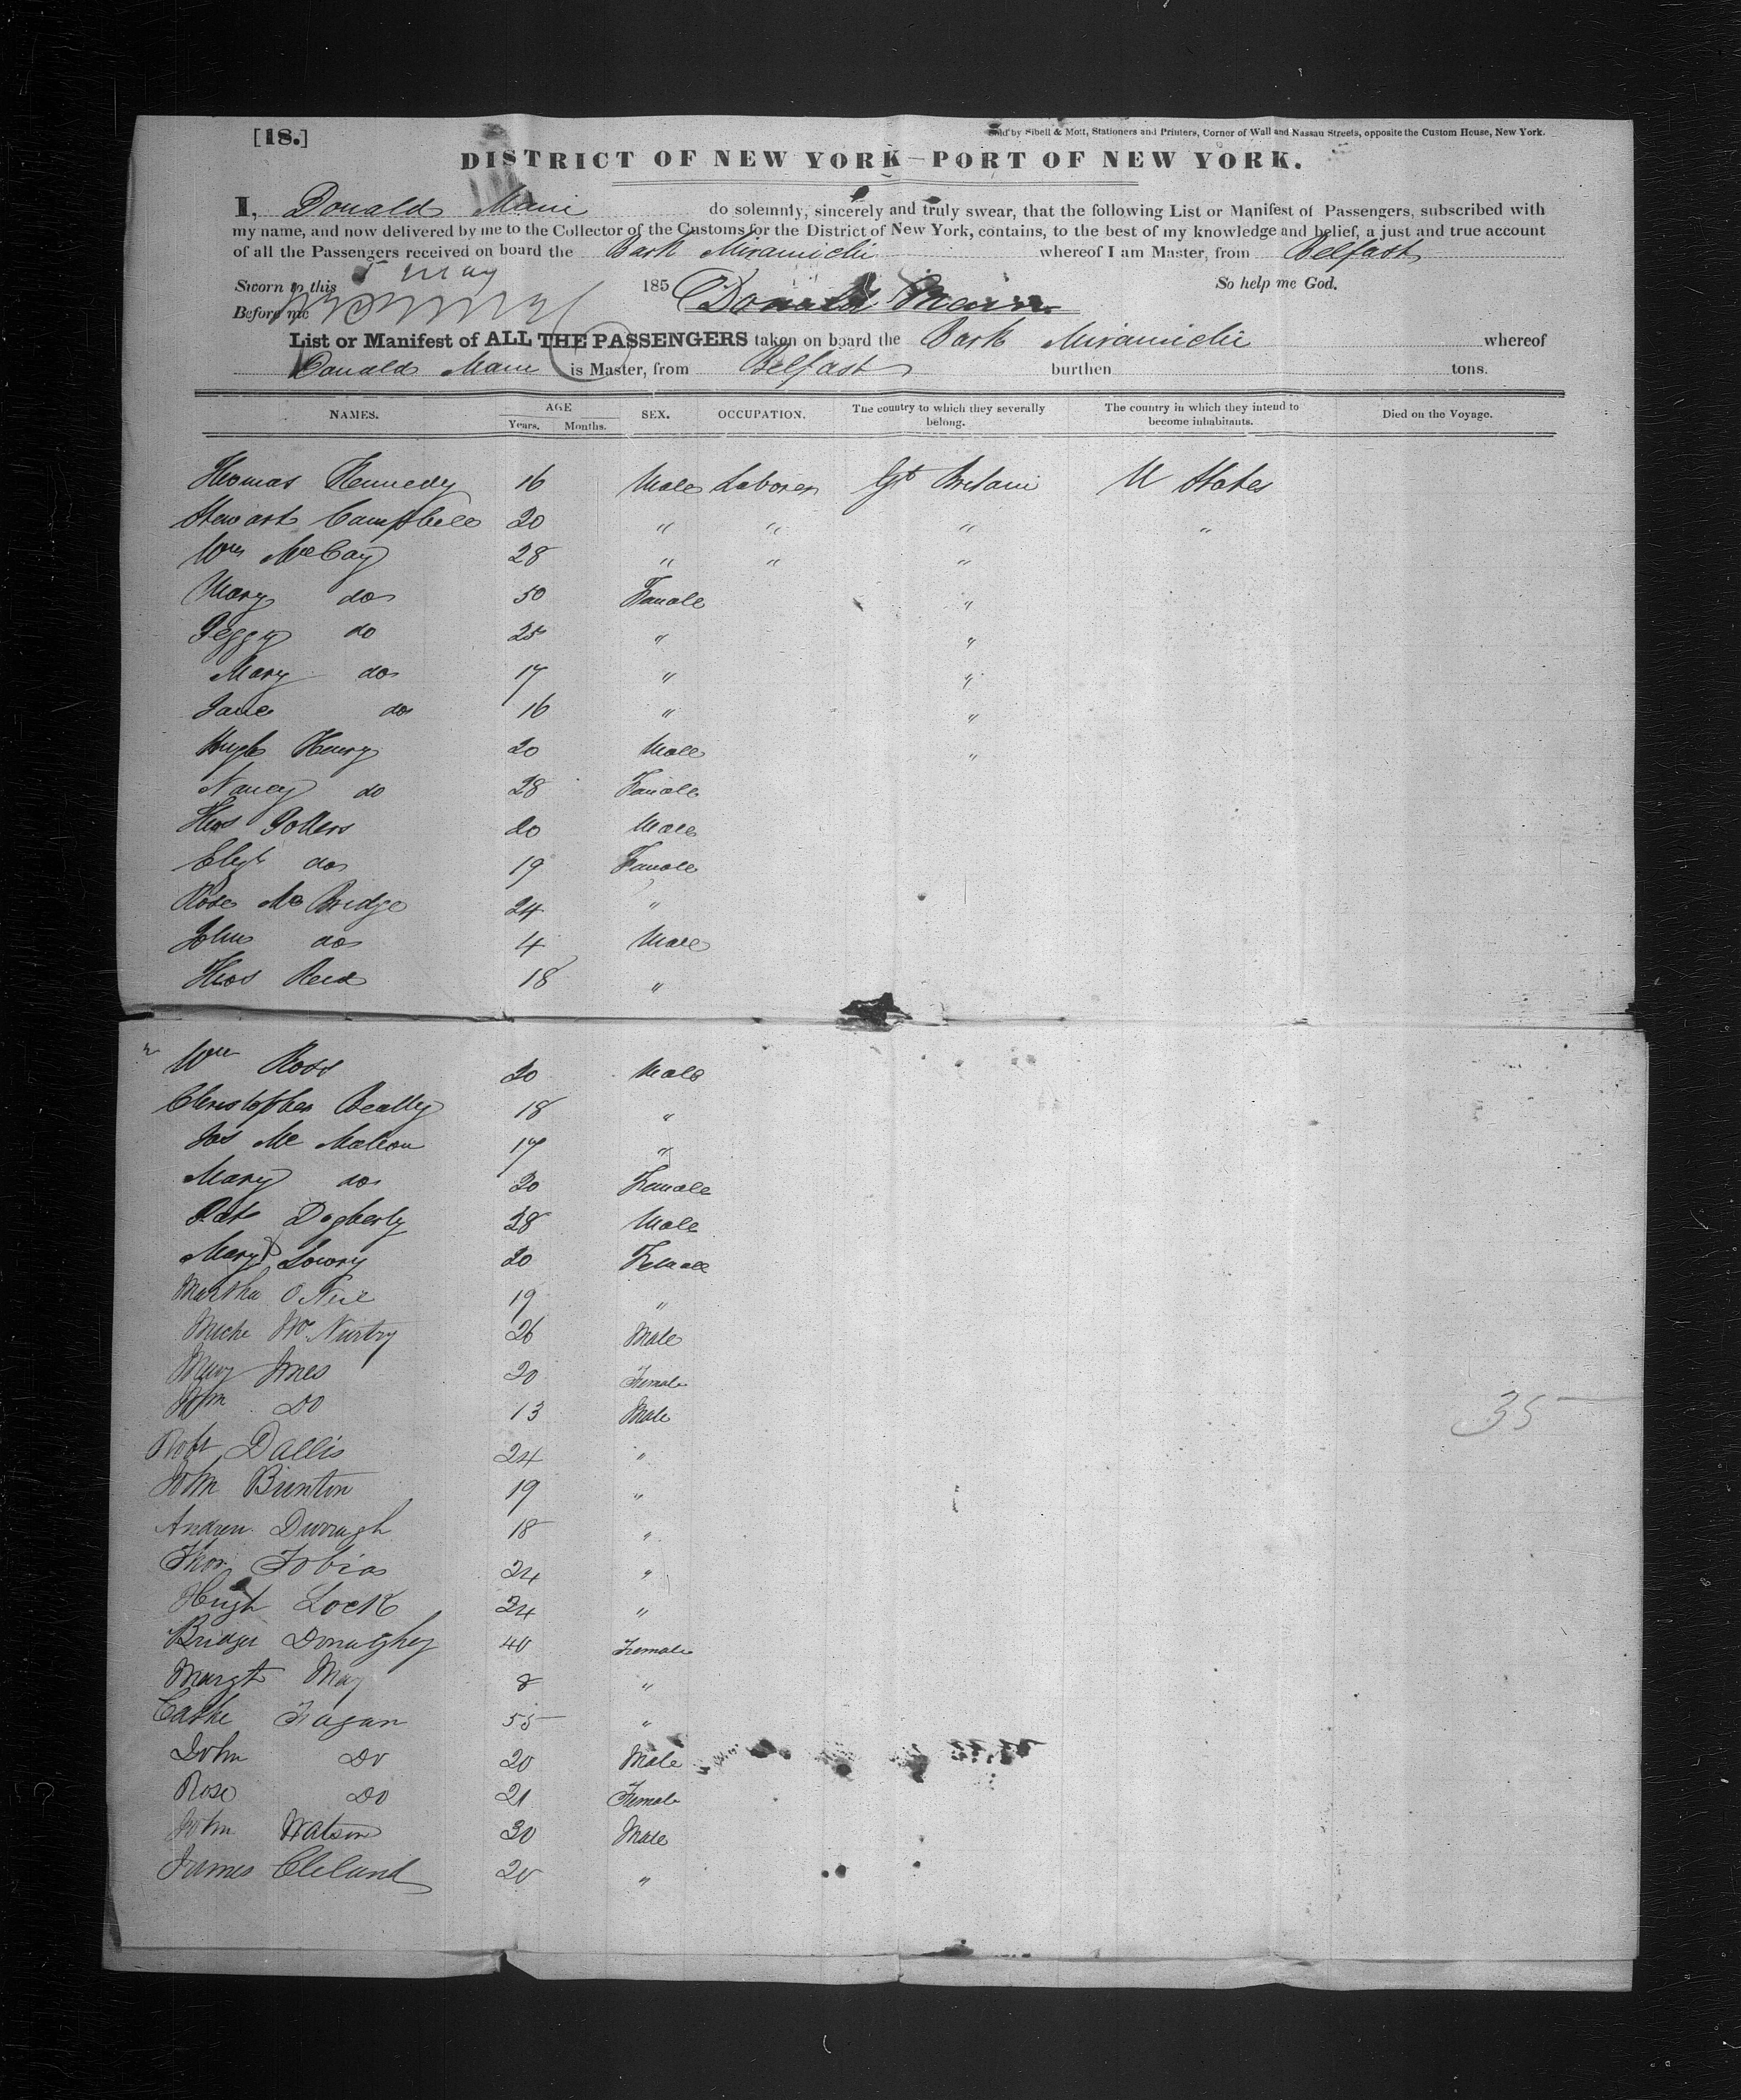 [18.]
Sold by Sibell & Mott, Stationers and Printers, Corner of Wall and Nassau Streets, opposite the Custom House, New York.
DISTRICT OF NEW YORK—PORT OF NEW YORK.
I, Donald Mann do solemnly, sincerely and truly swear, that the following List or Manifest of Passengers, subscribed with
my name, and now delivered by me to the Collector of the Customs for the District of New York, contains, to the best of my knowledge and belief, a just and true account
of all the Passengers received on board the Bark Miramichi whereof I am Master, from Belfast
Sworn to this 5 May 185 So help me God.
Before me Donald Mann
List or Manifest of ALL THE PASSENGERS taken on board the Bark Miramichi whereof
Donald Mann is Master, from Belfast burthen tons.
NAMES. AGE Years. Months. SEX. OCCUPATION. The country to which they severally belong. The country in which they intend to become inhabitants. Died on the Voyage.
Thomas Kennedy 16 Male Laborer Gt Britain U States
Stewart Campbell 20 " " " "
Wm McCay 28 " " "
Mary do 50 Female "
Peggy do 25 " "
Mary do 17 " "
Jane do 16 " "
Hugh Henry 20 Male "
Nancy do 28 Female
Thos 20 Male
Eliza do 19 Female
Rose McBridge 24 "
John do 4 Male
Thos Reid 18 "
Wm Ross 20 Male
Christopher Beatty 18 "
Jas McMahon 17 "
Mary do 20 Female
Pat Dogherty 28 Male
Mary Lowry 20 Female
Martha O Neil 19 "
Miche 26 Male
Mary Jones 20 Female
Wm Do 13 Male
35
Robt Dallis 24 "
John Brinton 19 "
Andrew Durragh 18 "
Thos Tobias 24 "
Hugh Lock 24 "
Bridget Donaghey 40 Female
Margt May 8 "
Cathe Fagan 55 "
John Do 20 Male
Rose Do 21 Female
John Watson 30 Male
James Cleland 20 "